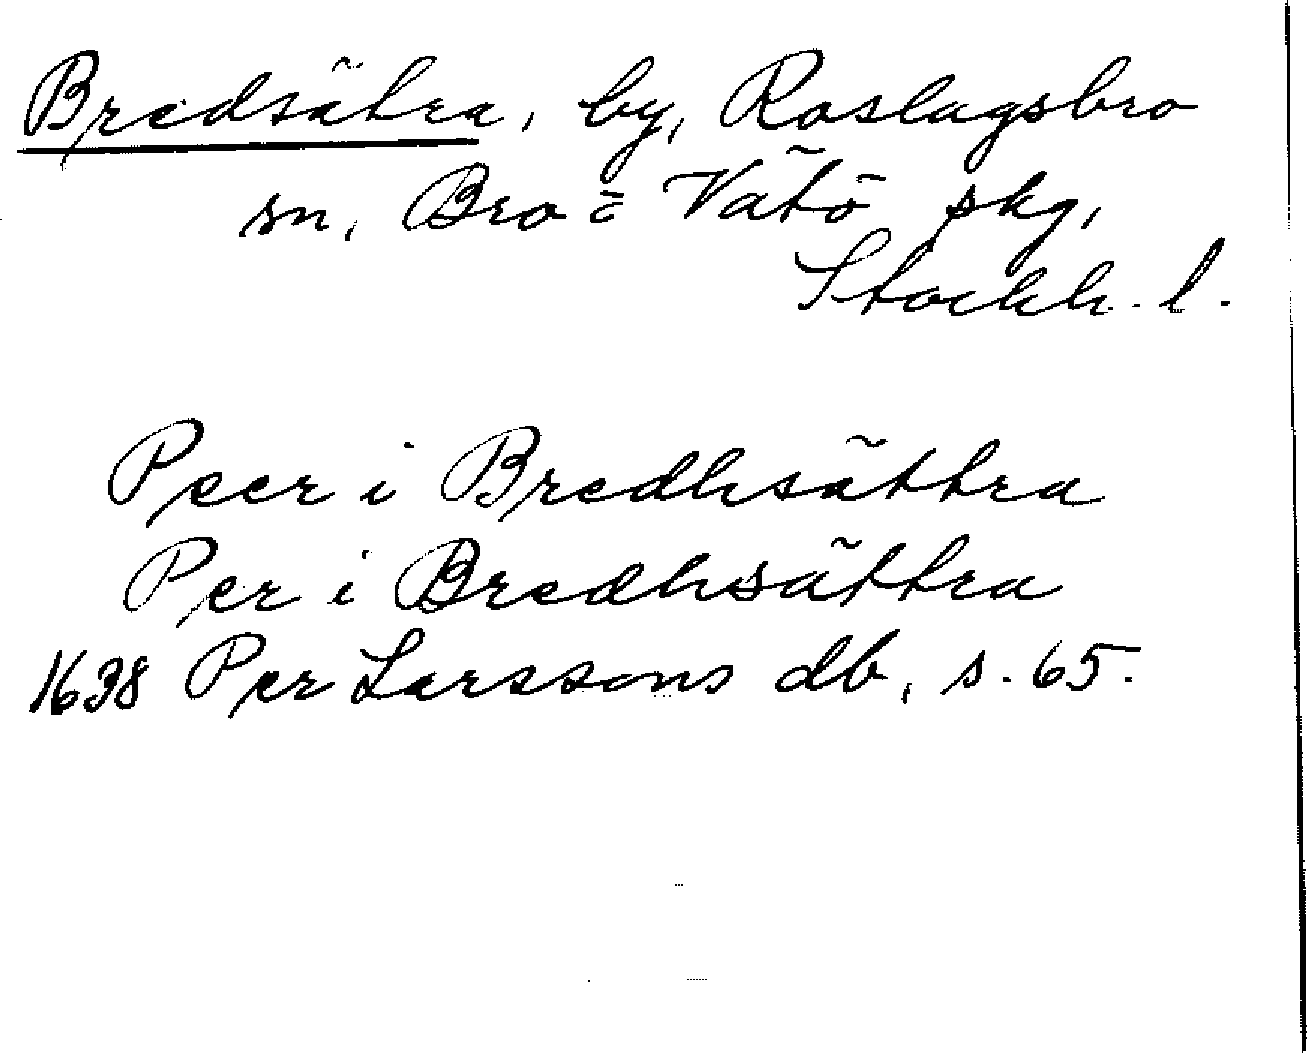 Bredsätra, by, Roslagsbro
sn, Bro o Vätö skg,
Stockh. l.
Peer i Bredhsättra
Per i Bredhsättra
1638 Per Larssons db, s. 65.